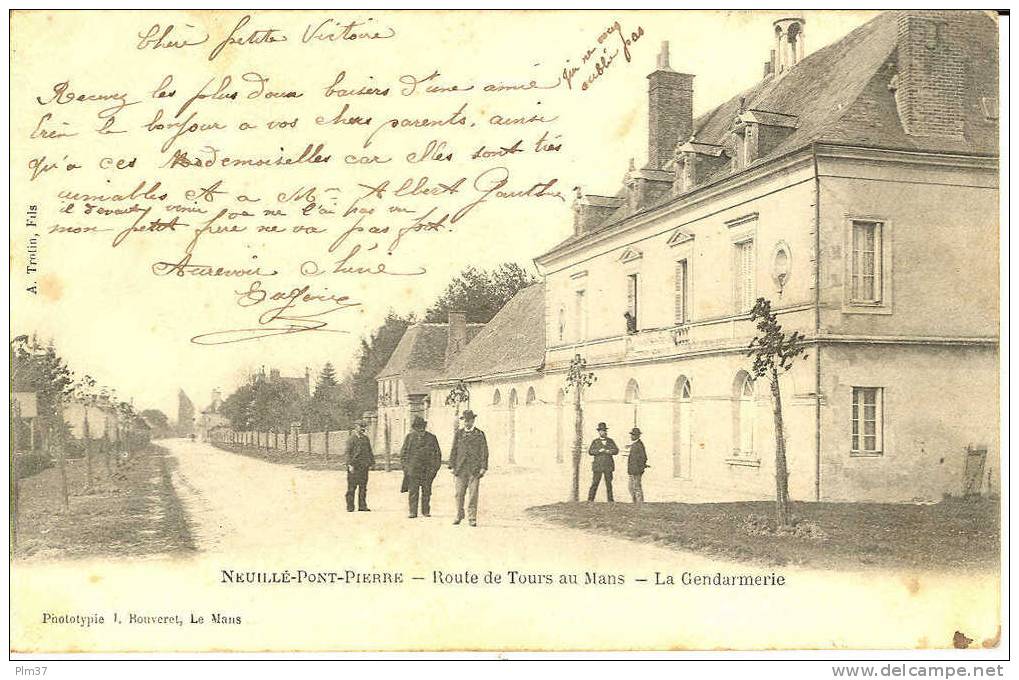 Chère petite Victoire
Recevez les plus doux baisers d'une amie qui ne vous
oublie pas
bien le bonjour a vos chers parents. ainsi
qu'a ces Mademoiselles car elles sont très
aimables Et a Mr Albert
il devait venir je ne l'ai pas vu
mon petit frère ne va pas fort.
Aurevoir Chérie
A. Trotin, Fils
NEUILLÉ-PONT-PIERRE — Route de Tours au Mans — La Gendarmerie
Phototypie J. Bouveret, Le Mans
Plm37
www.delcampe.net